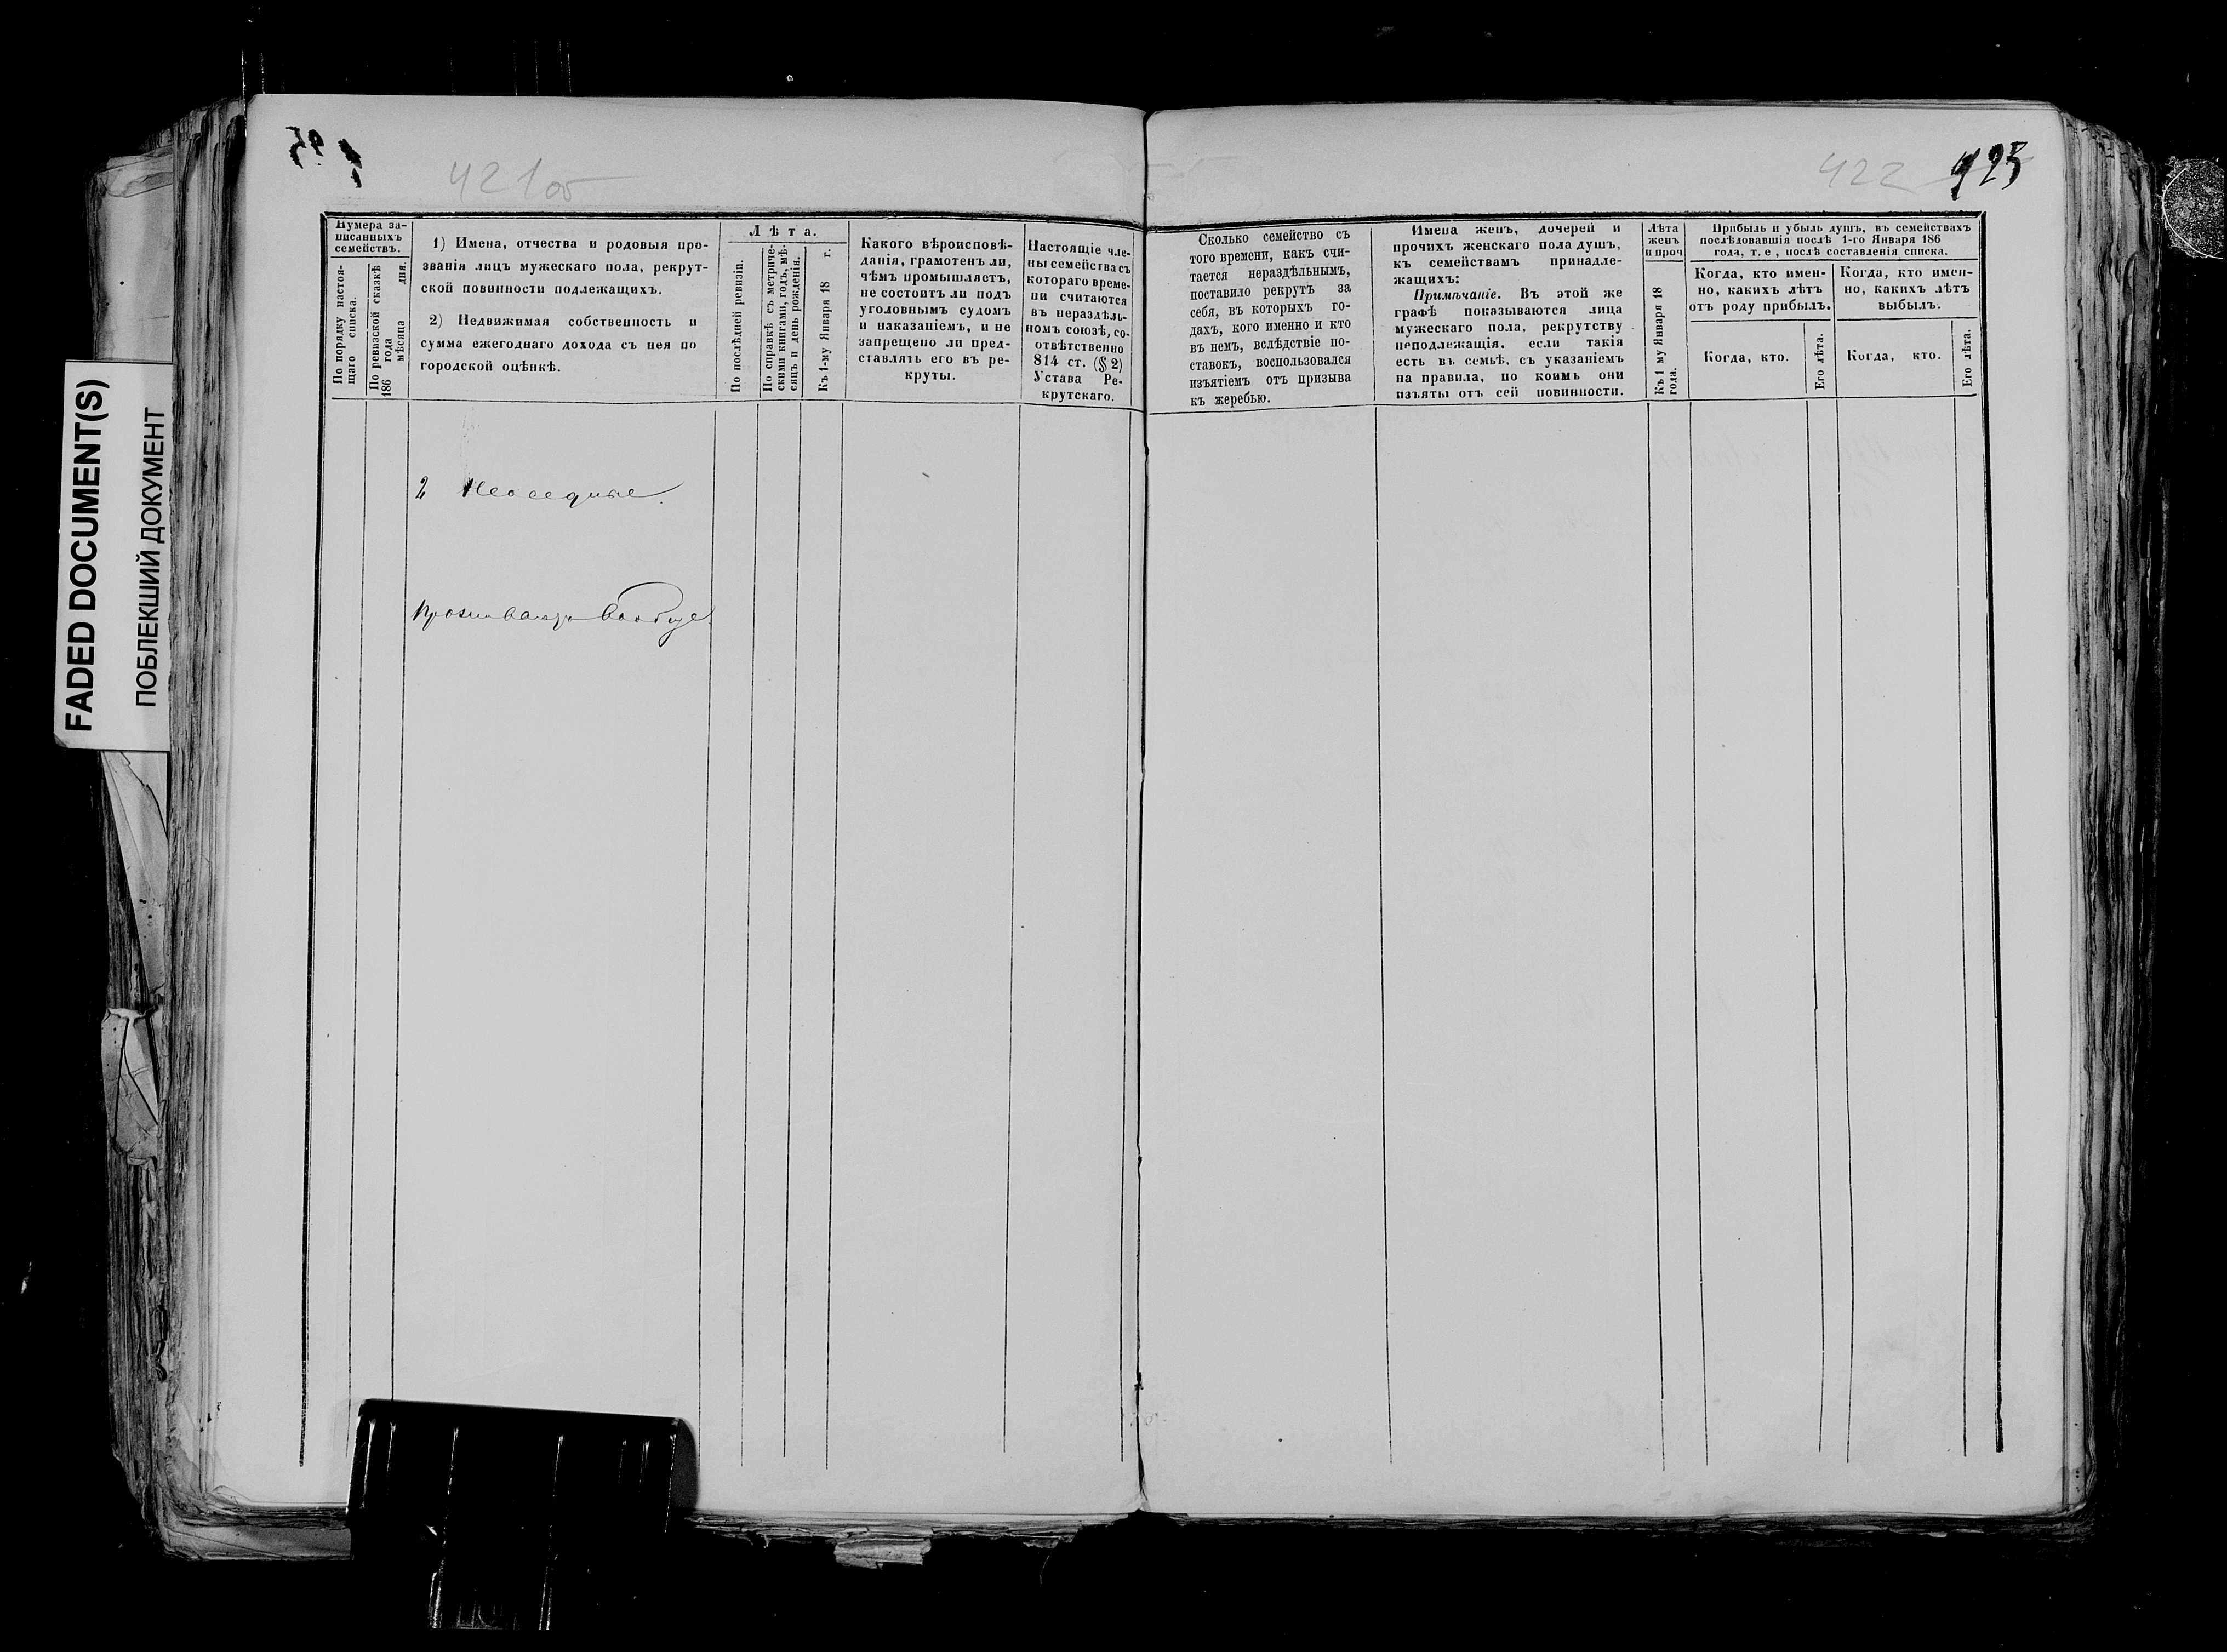 FADED DOCUMENT(S)
ПОБЛЕКШИЙ ДОКУМЕНТ
421об
422 425
Нумера за-
писанныхъ
семействъ.
По порядку настоя-
щаго списка.
По ревизской сказкѣ
186 года мѣсяца дня.
1) Имена, отчества и родовыя про-
званія лицъ мужескаго пола, рекрут-
ской повинности подлежащихъ.
2) Недвижимая собственность и
сумма ежегоднаго дохода съ нея по
городской оцѣнкѣ.
Лѣта.
По послѣдней ревизіи.
По справкѣ съ метриче-
скими книгами, годъ, мѣ-
сяцъ и день рожденія.
Къ 1-му Января 18 г.
Какого вѣроисповѣ-
данія, грамотенъ ли,
чѣмъ промышляетъ,
не состоитъ ли подъ
уголовнымъ судомъ
и наказаніемъ, и не
запрещено ли пред-
ставлять его въ ре-
круты.
Настоящіе чле-
ны семейства съ
котораго време-
ни считаются
въ нераздѣль-
номъ союзѣ, со-
отвѣтственно
814 ст. (§ 2)
Устава Ре-
крутскаго.
2 Неоседлые.
Проживаютъ вообще.
Сколько семейство съ
того времени, какъ счи-
тается нераздѣльнымъ,
поставило рекрутъ за
себя, въ которыхъ го-
дахъ, кого именно и кто
въ немъ, вслѣдствіе по-
ставокъ, воспользовался
изъятіемъ отъ призыва
къ жеребью.
Имена женъ, дочерей и
прочихъ женскаго пола душъ,
къ семействамъ принадле-
жащихъ:
Примѣчаніе. Въ этой же
графѣ показываются лица
мужескаго пола, рекрутству
неподлежащія, если такія
есть въ семьѣ, съ указаніемъ
на правила, по коимъ они
изъяты отъ сей повинности.
Лѣта
женъ
и проч
Къ 1 му Января 18
года.
Прибыль и убыль душъ, въ семействахъ
послѣдовавшія послѣ 1-го Января 186
года, т. е , послѣ составленія списка.
Когда, кто имен-
но, какихъ лѣтъ
отъ роду прибылъ.
Когда, кто.
Его лѣта.
Когда, кто имен-
но, какихъ лѣтъ
выбылъ.
Когда, кто.
Его лѣта.